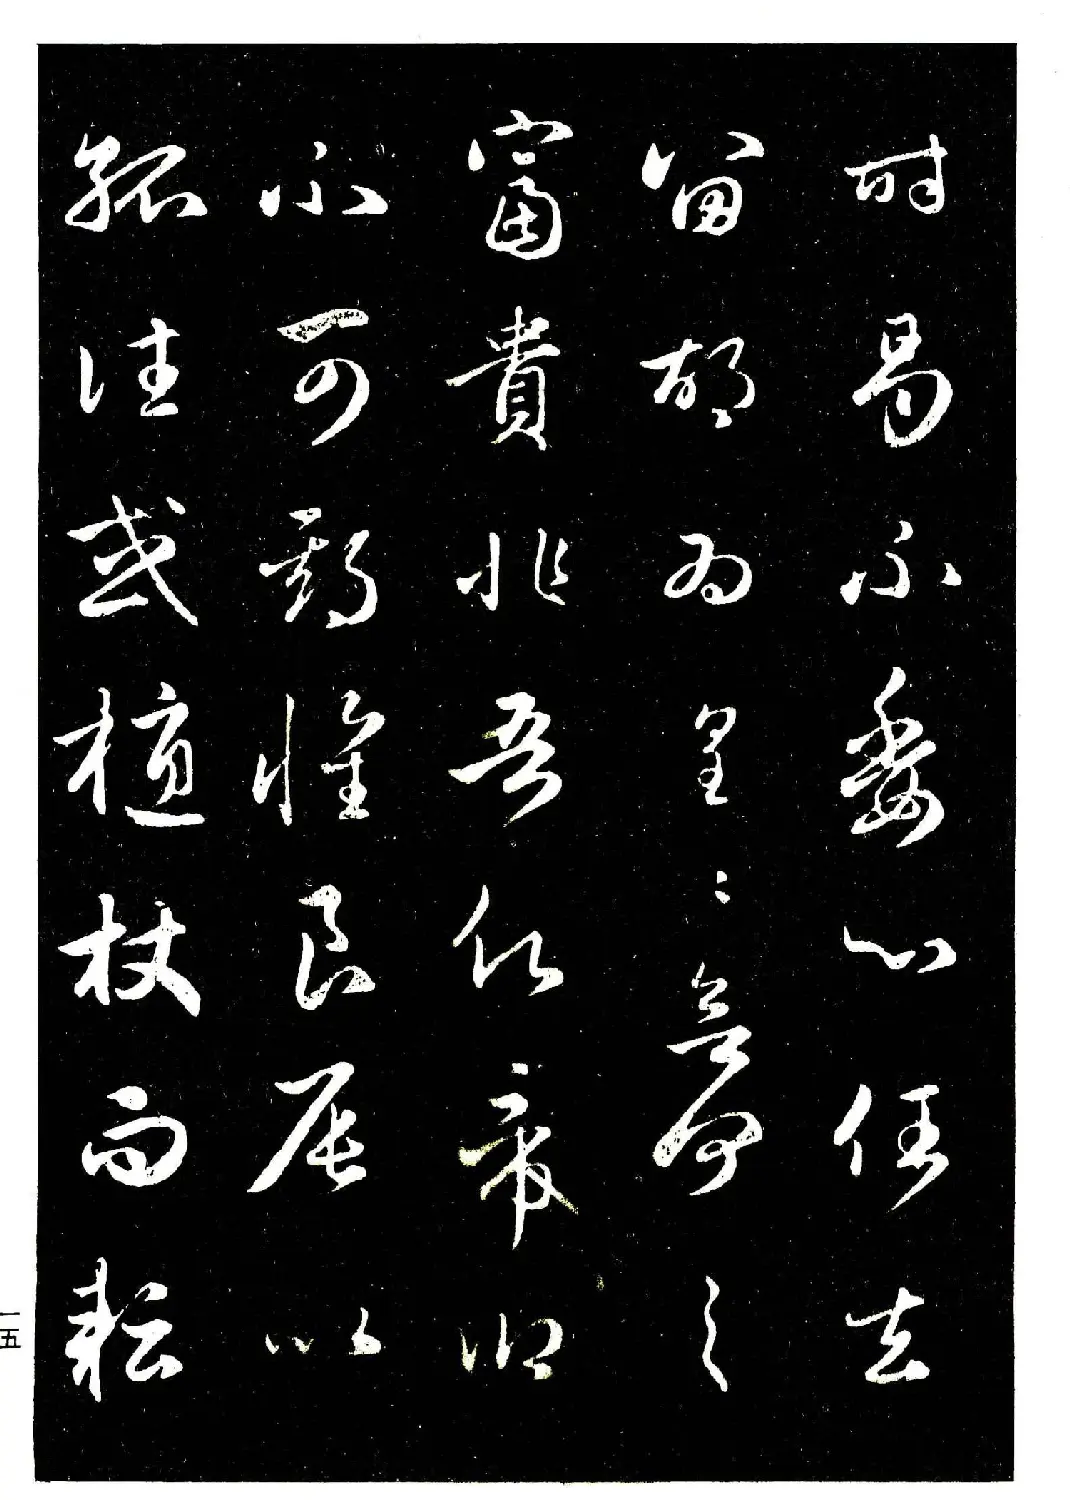 時曷不委心任去
留胡為皇〻欲何之
富貴非吾願帝鄉
不可期懷良辰以
孤往或植杖而耘
一五